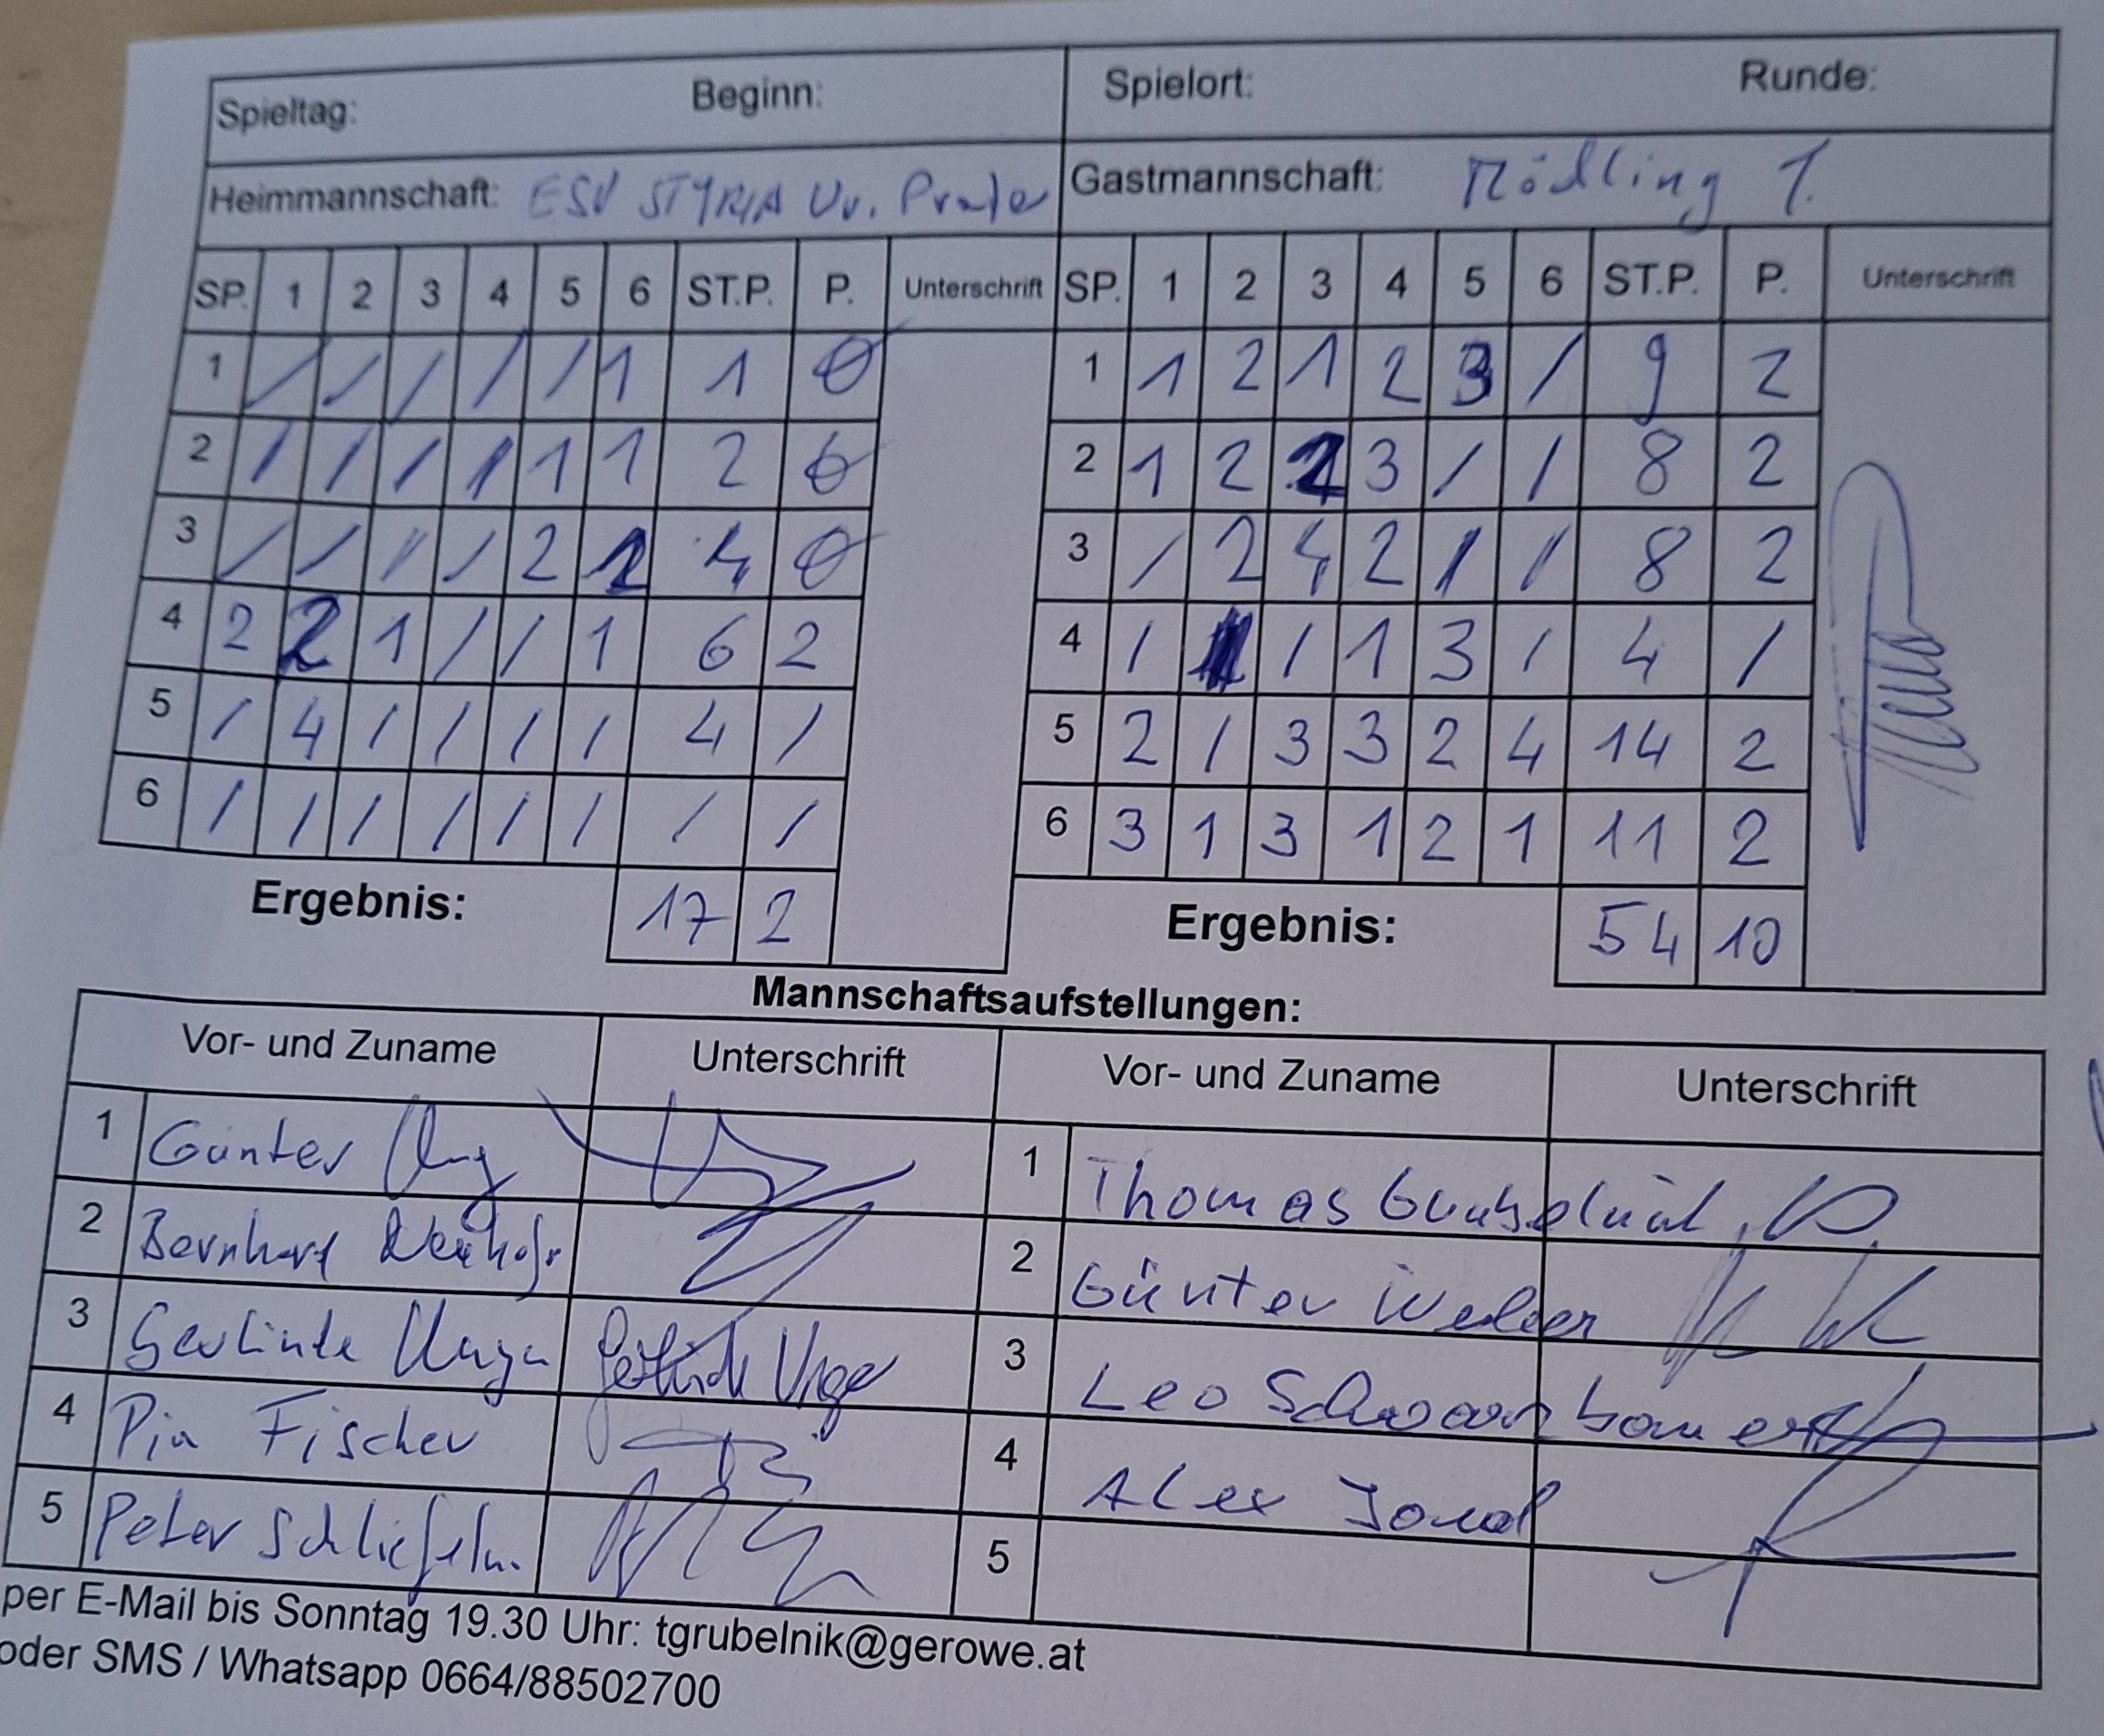 Spieltag: Beginn: Spielort: Runde:
Heimmannschaft: ESV STYRIA Uv. Prade Gastmannschaft: Mödling 1.
SP. 1 2 3 4 5 6 ST.P. P. Unterschrift SP. 1 2 3 4 5 6 ST.P. P. Unterschrift
1 / / / / / 1 1 0 1 1 2 1 2 3 / 9 2
2 / / / / 1 1 2 0 2 1 2 2 3 / / 8 2
3 / / / / 2 2 4 0 3 / 2 4 2 / / 8 2
4 2 2 1 / / 1 6 2 4 / / 1 3 / 4 /
5 / 4 / / / / 4 / 5 2 / 3 3 2 4 14 2
6 / / / / / / / / 6 3 1 3 1 2 1 11 2
Ergebnis: 17 2 Ergebnis: 54 10
Mannschaftsaufstellungen:
Vor- und Zuname Unterschrift Vor- und Zuname Unterschrift
1 Günter 1 Thomas
2 Bernhard 2 Günter
3 Gerlinde 3 Leo
4 Pia Fischer 4 Alex
5 Peter 5
per E-Mail bis Sonntag 19.30 Uhr: tgrubelnik@gerowe.at
oder SMS / Whatsapp 0664/88502700